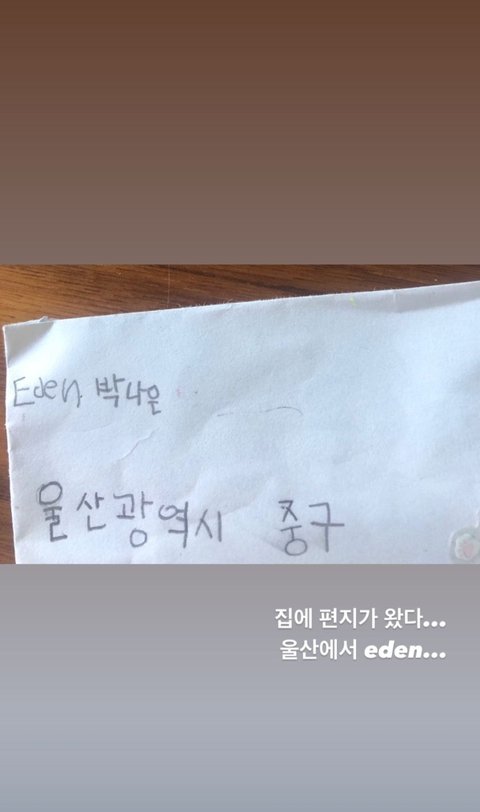 Eden. 박나은
울산광역시 중구
집에 편지가 왔다...
울산에서 eden...